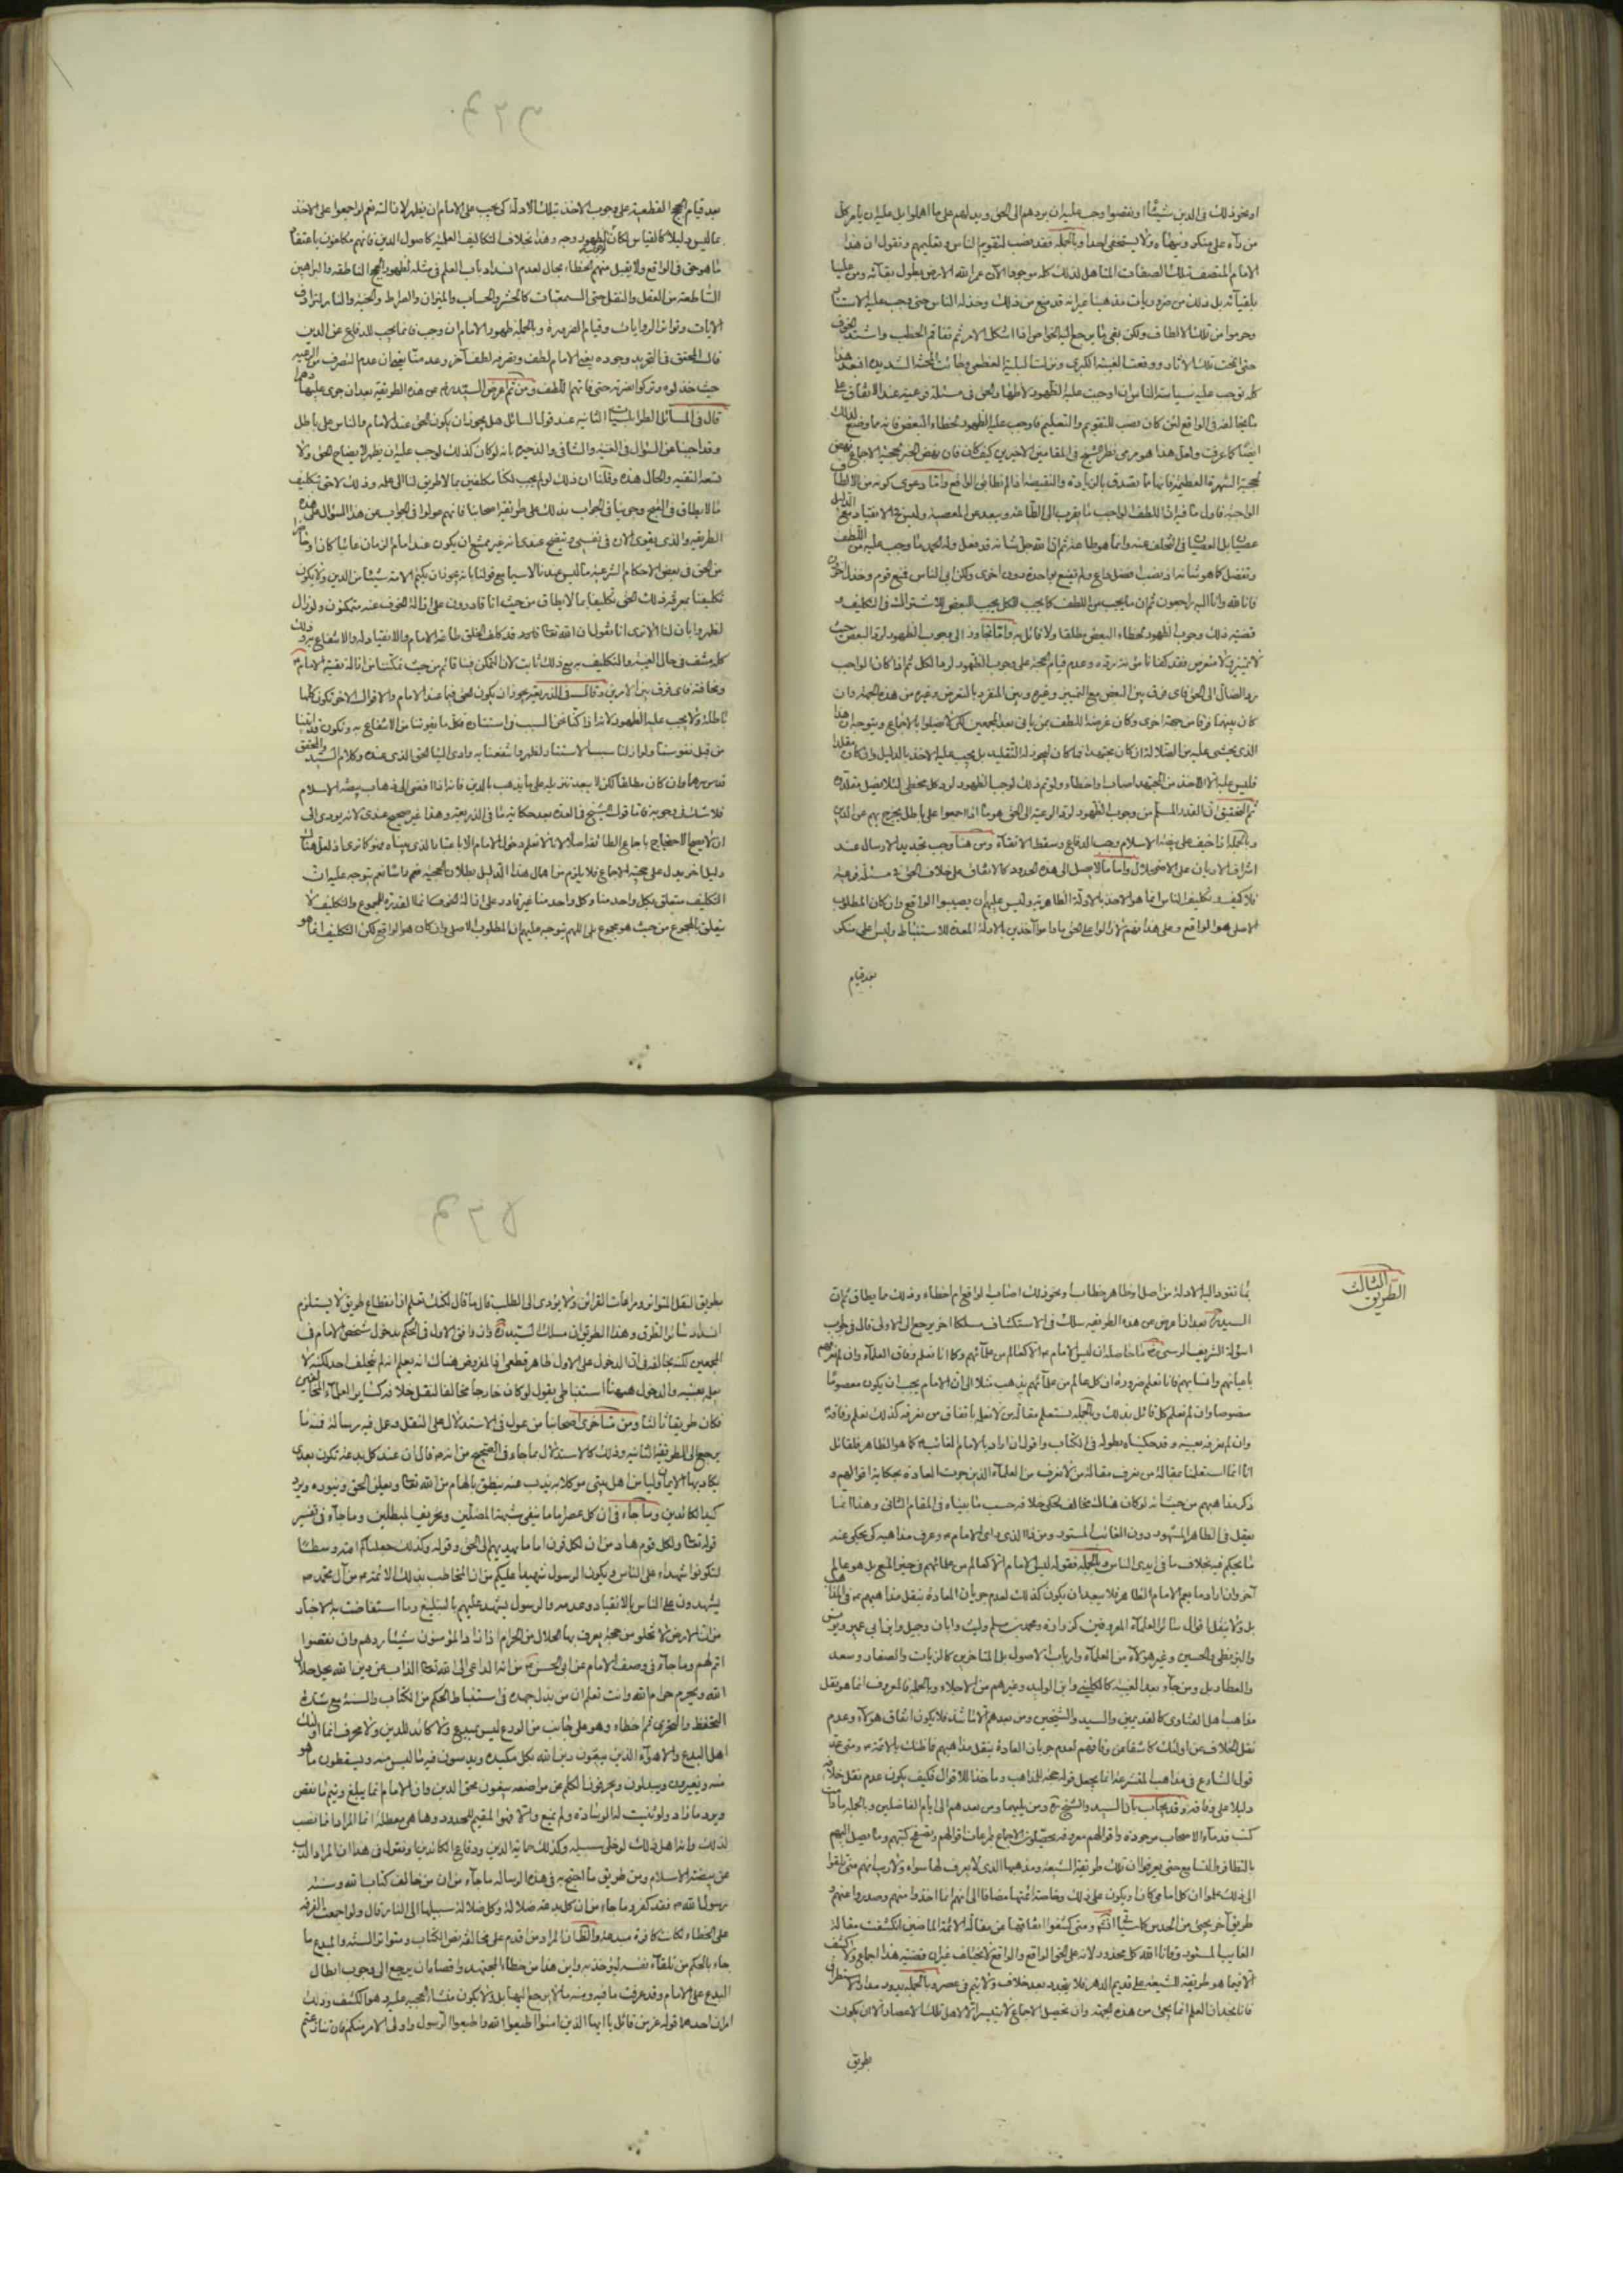 او نحو ذلك فى الدين شيئًا او نقصوا وجب عليه ان يردهم الى الحق ويدلهم على ما اهملوا بل عليه ان يامر كل
من رآه على منكر وينهاه ولا يستخفى احدا وبالجملة فقد نصب لتقويم الناس وتعليمهم ونقول ان هذا
الامام المتصف بتلك الصفات المتاهل لذلك كله موجود الآن عمر الله الارض بطول بقائه ومن علينا
بلقيآئه بل ذلك من ضروريات مذهبنا غير انه قد منع من ذلك وخذله الناس حتى وجب عليه الاستتار
وحرموا من تلك الالطاف ولكن بقى ما يرجع اليه الخواص اذا اشكل الامر ثم تفاقم الخطب واشتد الخوف
حتى انمحت تلك الآثار ووقعت الغيبة الكبرى ونزلت البلية العظمى وطالت المحنة الشديدة افبعد هذا
كله توجب عليه سياسة الناس ان اوجبت عليه الظهور لاظهار الحق فى مسئلة فرعية عند الاتفاق على
ما يخالفه فى الواقع لئن كان نصب للتقويم والتعليم فاوجب عليه الظهور لخطاء البعض فانه ما وضع لذلك
ايضًا كما عرفت ولعل هذا هو مرمى نظر الشيخ فى المقامين الاخيرين كيف كان فان بعض الخبر بحجية الاجماع
الواجبة فاول ما فيه ان اللطف الواجب ما يقرب الى الطاعة ويبعد عن المعصية وليس فى الانقياد مع الدليل
عصيان بل العصيان فى التخلف عنه وانما هو طاعة ثم ان الله جل شانه قد فعل وله الحمد ما وجب عليه من اللطف
وتفضل كما هو شانه اذ نصب افضل داع ولم يقنع بواحدة دون اخرى ولكن ابى الناس فمنع قوم وخذل آخرون
فانا لله وانا اليه راجعون ثم ان ما يجب من اللطف كما يجب للكل يجب للبعض للاشتراك فى التكليف و
قضية ذلك وجوب الظهور لخطاء البعض مطلقا ولا قائل به واما تجاوز الى وجوب الظهور لرد البعض حيث
رد الضال الى الحق فاى فرق بين البعض مع التميز وغيره وبين المنفرد بالتعرض وغيره من هذه الجهة وان
كان بينهما فرقا من جهة اخرى وكان عرضه اللطف بمن ياتى بعد المجمعين لكى لا يضلوا بالاجماع ويتوجه ان هذا
الذى يخشى عليه من الضلالة ان كان مجتهدا فما كان ليجوز له التقليد بل يجب عليه الاخذ بالدليل وان كان مقلدا
فليس عليه الا الاخذ من المجتهد اصاب او اخطاء ولو تم ذلك لوجب الظهور لرد كل مخطى لئلا يضل مقلده
ثم التحقيق ان القدر المسلم من وجوب الظهور لرد الرعية الى الحق هو ما اذا اجمعوا على باطل يخرج بهم عن الدين
وبالجملة اذا خيف على بيضة الاسلام وجب الدفاع وسقط الاتقآء ومن هنا وجب تجديد الارسال عند
اشراف الاديان على الاضمحلال واما ما لا يصل الى هذه الحدود كالاتفاق على خلاف الحق فى مسئلة فرعية
فلا كيف وتكليف الناس انما هو الاخذ بالادلة الظاهرية وليس عليهم ان يصيبوا الواقع وان كان المطلوب
الاصلى هو الواقع وعلى هذا فهم لا زالوا على الحق ما داموا آخذين بالادلة المعدة للاستنباط وليس على منكر
بعد قيام
بعد قيام الحجج القطعية على وجوب الاخذ بتلك الادلة كى يجب على الامام ان يظهر لازالته نعم لو اجمعوا على الاخذ
بما ليس دليلا كالقياس لكان لظهوره وجه وهذا بخلاف التكاليف العلمية كاصول الدين فانهم مكلفون باعتقاد
ما هو حق فى الواقع ولا يقبل منهم الخطاء بحال لعدم انسداد باب العلم فى مثله لظهور الحجج الناطقة والبراهين
القاطعة من العقل والنقل حتى السمعيات كالحشر والحساب والميزان والصراط والجنة والنار لترادف
الآيات وتواتر الروايات وقيام الضرورة وبالجملة ظهور الامام ان وجب فانما يجب للدفاع عن الدين
قال المحقق فى التجريد وجوده يعنى الامام لطف وتصرفه لطف آخر وعدمه منا يعنى ان عدم التصرف من الرعية
حيث خذلوه وتركوا نصرته حتى فاتهم اللطف ومن ثم عرض السيد ره عن هذه الطريقة بعد ان جرى عليها دهرا
قال فى المسائل الطرابلسيات الثانية عند قول السائل هل يجوز ان يكون الحق عند الامام والناس على باطل
وقد اجبنا عن السؤال فى الغيبة والشافى والذخيرة بانه لو كان كذلك لوجب عليه ان يظهر لايضاح الحق ولا
تسعه التقية والحال هذه وقلنا ان ذلك لو لم يجب لكنا مكلفين بما لا طريق لنا الى علمه وذلك لاحق بتكليف
ما لا يطاق فى القبح وجرينا فى الجواب بذلك على طريقة اصحابنا فانهم عولوا فى الجواب عن هذا السؤال على هذه
الطريقة والذى يقوى الآن فى نفسى ويتضح عندى انه غير ممتنع ان يكون عند امام الزمان غائبا كان او حاضرا
من الحق فى بعض الاحكام الشرعية ما ليس عندنا لا سيما مع قولنا بانه يجوز ان يكتم الامة شيئا من الدين ولا يكون
تكليفنا بمعرفة ذلك الحق تكليفا بما لا يطاق من حيث انا قادرون على ازالة الخوف عنه متمكنون ولو زال
لظهر وابان لنا الا ترى انا نقول ان الله تعالى قد كلف الخلق طاعة الامام والانقياد له والانتفاع به وذلك
كله منتف فى حال الغيبة والتكليف به مع ذلك ثابت لان التمكن منا قائم من حيث تمكننا من ازالة تقية الامام
ومخافته فاى فرق بين الامرين وقال فى الذريعة يجوز ان يكون الحق فيما عند الامام والاقوال الاخر تكون كلها
باطلة ولا يجب عليه الظهور لانه اذا كنا نحن السبب فى استتاره فكل ما يفوتنا من الانتفاع به وتكون قد اتينا
من قبل نفوسنا ولو ازلنا سبب الاستتار لظهر وانتفعنا به وادى الينا الحق الذى عنده وكلام السيد والمحقق
قدس سرهما وان كان مطلقا لكن لا يبعد تنزيله على ما يذهب بالدين فانه اذا افضى الى ذهاب بيضة الاسلام
فلا شك فى وجوبه فاما قول الشيخ فى العدة بعد حكاية ما فى الذريعة وهذا غير صحيح عندى لانه يودى الى
ان لا يصح الاحتجاج باجماع الطائفة اصلا لانا لا نعلم دخول الامام الا باعتبار الذى بيناه فهو كما ترى اذ لعل هناك
دليلا آخر يدل على حجية الاجماع فلا يلزم من اهمال هذا الدليل بطلان الحجية
التكليف متعلق بكل واحد منا وكل واحد منا غير قادر على ازالة الخوف كائنا القدرة للمجموع والتكليف لا
يتعلق بالمجموع من حيث هو مجموع بلى اللهم يتوجه عليهم ان المطلوب الاصلى وان كان هو الواقع لكن التكليف انما هو
الطريق الثالث
بما تقود اليه الادلة من اصل وظاهر خطاب ونحو ذلك اصاب الواقع ام اخطاء وذلك مما يطاق ثم ان
السيد ره بعد ان اعرض عن هذه الطريقة سلك فى الاستكشاف مسلكا آخر يرجع الى الاولى قال فى جواب
اسؤلة الشريف الرسى ره ما حاصله ان ليس الامام عم الا كعالم من علمائهم وكما انا نعلم وفاق العلمآء وان لم نعرفهم
باعيانهم وانسابهم فانا نعلم ضرورة ان كل عالم من علمآئهم يذهب مثلا الى ان الامام يجب ان يكون معصومًا
منصوصا وان لم نعلم كل قائل بذلك وبالجملة يستعلم مقالة من لا نعلمه باتفاق من نعرفه كذلك نعلم وفاقه
وان لم نعرفه بعينه وقد حكيناه بطوله فى الكتاب واقول ان اراد بالامام الغائب كما هو الظاهر فلقائل
انا انما استعلمنا مقالة من نعرف مقالة من لا نعرف من العلمآء الذين جرت العادة بحكاية اقوالهم و
ذكر مذاهبهم من حيث انه لو كان هناك مخالف لحكى خلافه حسب ما بيناه فى المقام الثانى وهذا انما
يعقل فى الظاهر المشهود دون الغائب المستور ومن ذا الذى راى الامام عم وعرف مذاهبه كى يحكى عنه
ما يحكم فيه بخلاف ما فى ايدى الناس وبالجملة فقوله ليس الامام الا كعالم من علمائهم فى حيز المنع بل هو عالم
آخر وان اراد ما يعم الامام الظاهر فلا يبعد ان يكون كذلك لعدم جريان العادة بنقل مذاهبهم عم فى المذاهب
بل ولا بنقل اقوال سائر العلمآء المعروفين كزرارة ومحمد بن مسلم وليث وابان وجميل وابن ابى عمير ويونس
والبزنطى والحسين وغير هؤلآء من العلمآء وارباب الاصول بل المتاخرين كالزيات والصفار وسعد
والعطار بل ومن جآء بعد الغيبة كالكلينى وابن الوليد وغيرهم من الاجلاء وبالجملة فالمعروف انما هو نقل
مذاهب اهل الفتاوى كالقديمين والسيد والشيخين ومن بعدهم الا ما شذ فلا يكون اتفاق هؤلآء وعدم
نقل الخلاف عن اولئك كاشفا عن وفاقهم لعدم جريان العادة بنقل مذاهبهم فما ظنك بالائمة عم ومتى عد
قول الشارع فى مذاهب المتشرعة انما يجعل قوله حجة للمذاهب وماخذا للاقوال فكيف يكون عدم نقل خلافه
دليلا على وفاقه وقد يجاب بان السيد والشيخ ره ومن يليهما ومن بعدهم الى ايام الفاضلين وبالجملة ما دامت
كتب قدمآء الاصحاب موجودة واقوالهم معروفة يحصلون الاجماع بمراعات اقوالهم وتصفح كتبهم وما يصل اليهم
بالتظافر والتسامع حتى يعرفوا ان تلك طريقة الشيعة ومذهبها الذى لا يعرف لها سواه
طريق آخر يجئ من الحدس كما سيأتى انشآء الله ومتى كشفوا اتفاقها عن مقالة الائمة الماضين انكشفت مقالة
الغايب المستور
الا فيما هو طريقة للشيعة على قديم الدهر فلا يتجدد بعد خلاف ولا يتم فى عصر وبالجملة يدور مدار الاستظهار
فانا نجد ان العلم انما يجئ من هذه الجهة وان تحصيل الاجماع لا يتيسر الا لاهل تلك الاعصار والا ان يكون
بطريق
بطريق النقل المتواتر ومراعات القرائن ولا يؤدى الى الطلب قال ما قال لكنك تعلم ان انقطاع طريق لا يستلزم
انسداد سائر الطرق وهذا الطريق ان سلك السيد ره وان وافق الاول فى الحكم بدخول شخص الامام ف
المجمعين لكنه يخالفه فى ان الدخول على الاول ظاهر قطعى اذ المفروض هناك انه يعلم انه لم يتخلف احد لكنه لا
يعلم بعينه والدخول ههنا استنباطى يقول لو كان خارجا مخالفا لنقل خلافه كسائر العلمآء
فكان طريقا ثالثا ومن متاخرى اصحابنا من عول فى الاستدلال على النقل وعمل فيه رسالة فمنه ما
يرجع الى الطريقة الثانية وذلك كالاستدلال بما جاء فى الصحيح من انه ص قال ان عند كل بدعة تكون بعدى
يكاد بها الايمان وليا من اهل بيتى موكلا به يذب عنه ينطق بالهام من الله تعالى ويعلن الحق وينوره ويرد
كيد الكائدين وما جآء فى ان كل عصر اماما ينفى شبهة المضلين وتحريف المبطلين وما جآء فى تفسير
قوله تعالى ولكل قوم هاد من ان لكل قرن اماما يهديهم الى الحق وقوله وكذلك جعلناكم امة وسطًا
لتكونوا شهداء على الناس ويكون الرسول شهيدا عليكم من ان المخاطب بذلك الائمة عم من آل محمد ص
يشهدون على الناس بالانقياد وعدمه والرسول يشهد عليهم بالتبليغ وما استفاضت به الاخبار
من ان الارض لا تخلو من حجة يعرف بها الحلال من الحرام اذا زاد المؤمنون شيئا ردهم وان نقصوا
اتم لهم وما جآء فى وصف الامام عن ابى الحسن عم من انه الداعى الى الله تعالى الذاب عن دين الله يحل حلال
الله ويحرم حرام الله وانت تعلم ان من بذل جهده فى استنباط الحكم من الكتاب والسنة مع شدة
التحفظ والتحرى ثم خطاء وهو على جانب من الورع ليس بمبدع ولا كائد للدين ولا محرف انما اولئك
اهل البدع والاهوآء الذين يبغون دين الله بكل مكيدة ويدسون فيه ما ليس منه ويسقطون ما هو
منه ويغيرون ويبدلون ويحرفون الكلم عن مواضعه يبغون محق الدين وان الامام انما يبلغ ويتم ما نقص
ويرد ما زاد ولو ثنيت له الوسادة ولم يمنع والا فهو المقيم للحدود وها هى معطلة انما المراد انما نصب
لذلك وانه اهل ذلك لو خلى سبيله وكذلك حماية الدين ودفاع الكائدين ونقول فى هذا ان المراد الذب
عن بيضة الاسلام ومن طريق ما احتج به فى هذه الرسالة ما جآء من ان من خالف كتاب الله وسنة
رسول الله ص فقد كفر وما جاء من ان كل بدعة ضلالة وكل ضلالة سبيلها الى النار قال ولو اجمعت الفرقة
على الخطاء لكانت كافرة مبدعة والظاهر ان المراد من اقدم على مخالفة نص الكتاب ومتواتر السنة والمبدع ما
جاء بالحكم من تلقآء نفسه ليؤخذ به واين هذا من خطاء المجتهد وقصاه ان يرجع الى وجوب ابطال
البدع على الامام وقد عرفت ما فيه ومنه ما لا يرجع اليها بل ولا يكون منشأ الحجية عليه هو الكشف وذلك
امران احدهما قوله عز من قائل يا ايها الذين امنوا اطيعوا الله واطيعوا الرسول واولى الامر منكم فان تنازعتم